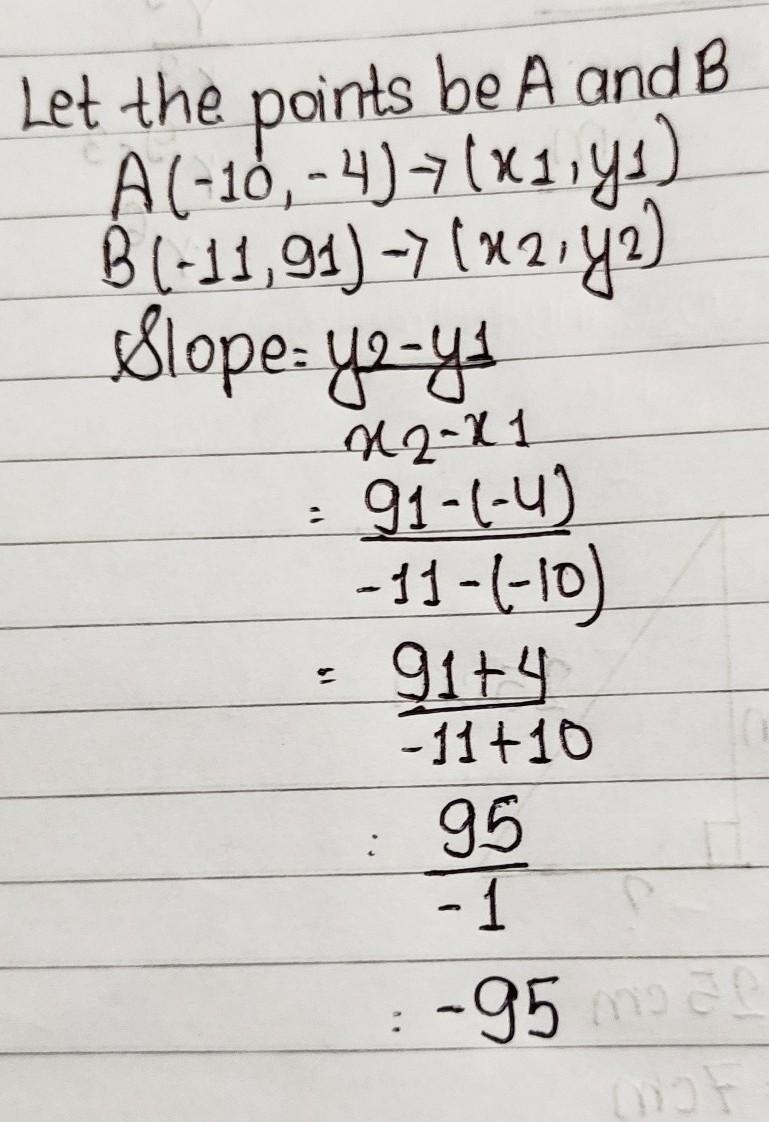 Let the points be A and B
A(-10, -4) → (x1, y1)
B(-11, 91) → (x2, y2)
Slope = y2-y1
x2-x1
= 91-(-4)
-11-(-10)
= 91+4
-11+10
: 95
-1
: -95
25 cm
7cm
?